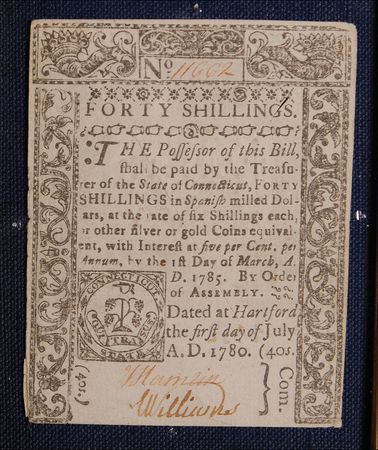 No 11662
FORTY SHILLINGS.
THE Possessor of this Bill,
shall be paid by the Treasu-
rer of the State of Connecticut, FORTY
SHILLINGS in Spanish milled Dol-
ars, at the ate of six Shillings each,
or other silver or gold Coins equival
ent, with Interest at five per Cent. per
Annum, by the 1st Day of March, A.
D. 1785. By Order
of ASSEMBLY.
CONNECTICUT
STATE
Dated at Hartford
the first day of July
A. D. 1780. (40s.
(40s.
Williams
Com.